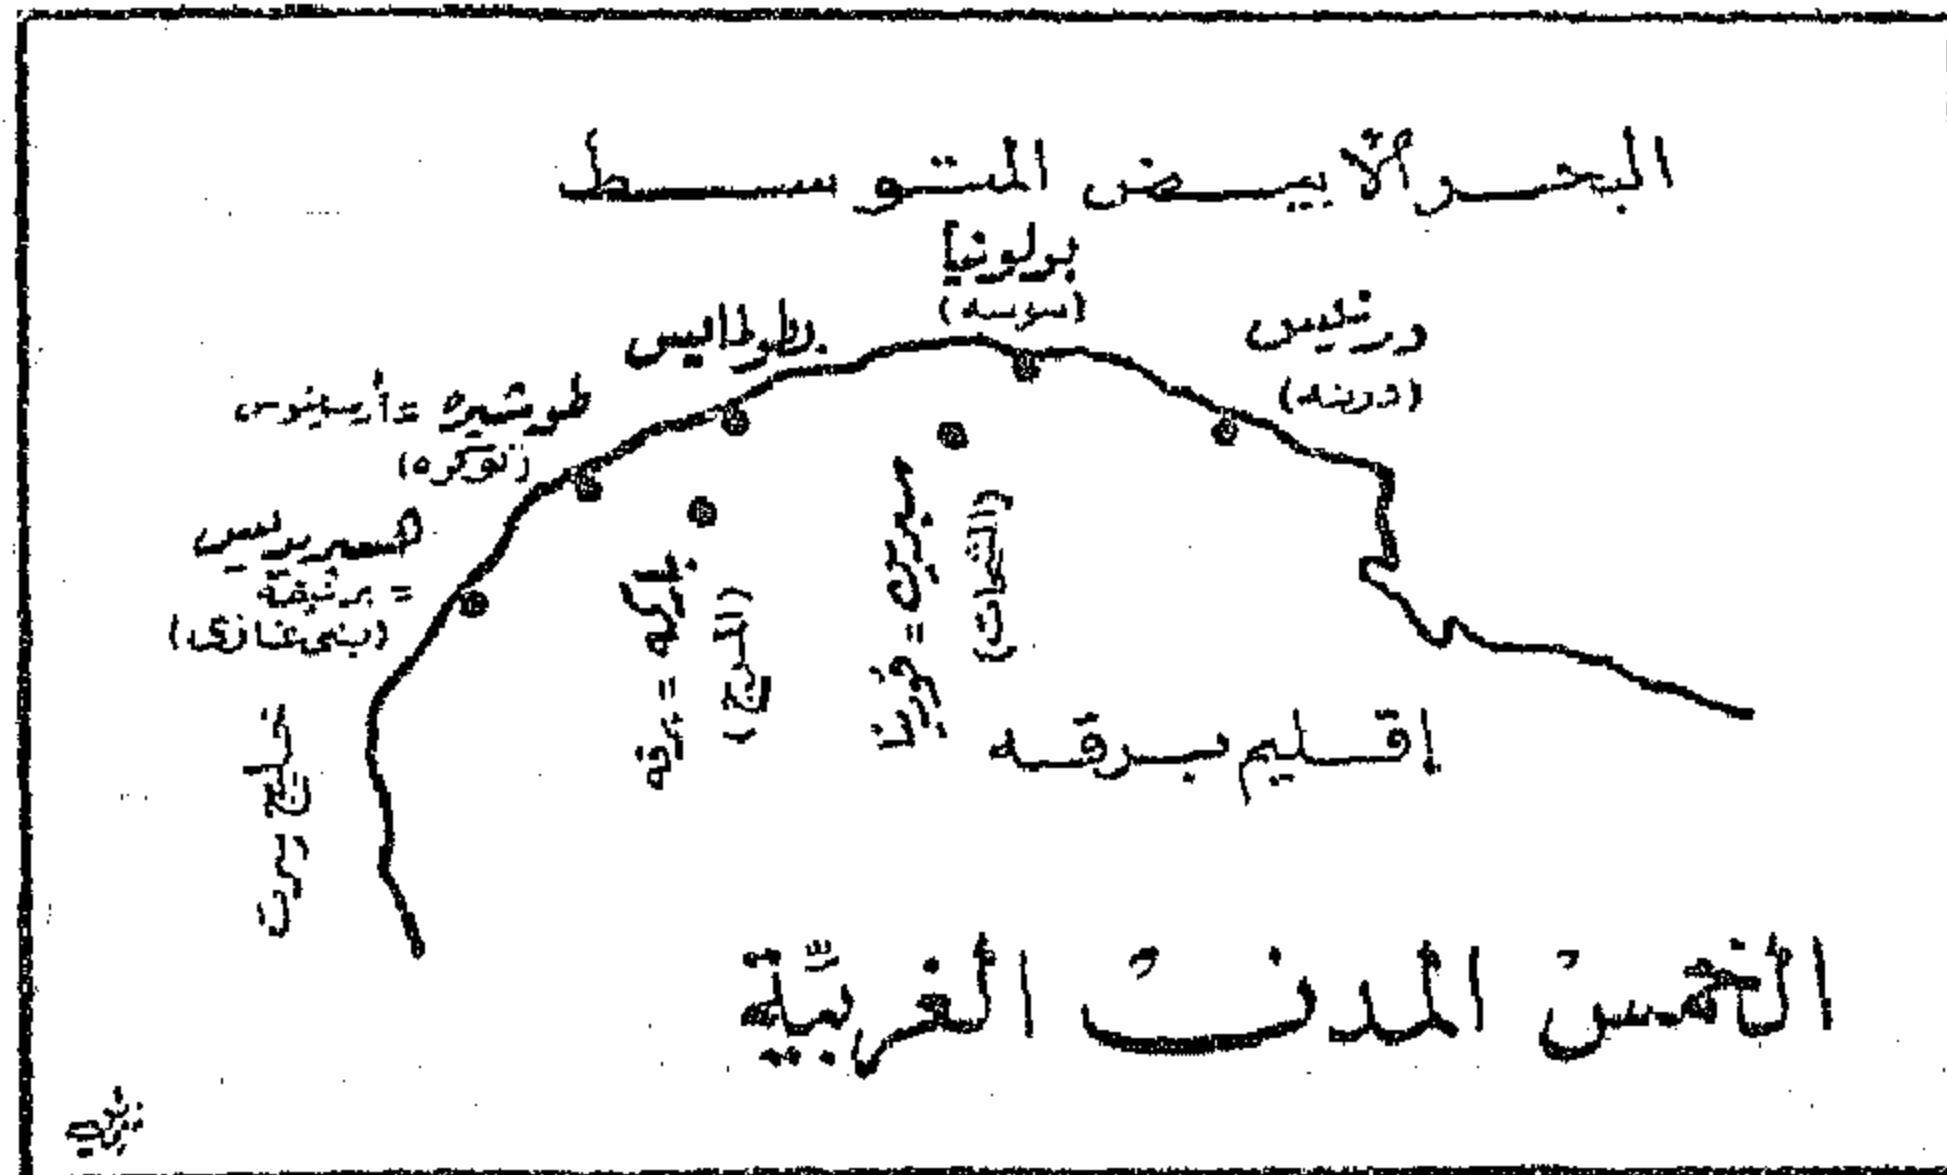 البحر الأبيض المتوسط
برلونيا
(سوسه)
درنيس
(درنه)
بطولماليس
طوشيره = أرسينوس
(توكره)
= برنيقة
(بنى غازى)
باركه = برقه
(المرج)
سيرين = قورينا
(الشحات)
خليج سرت
إقليم برقه
الخمس المدن الغربيّة